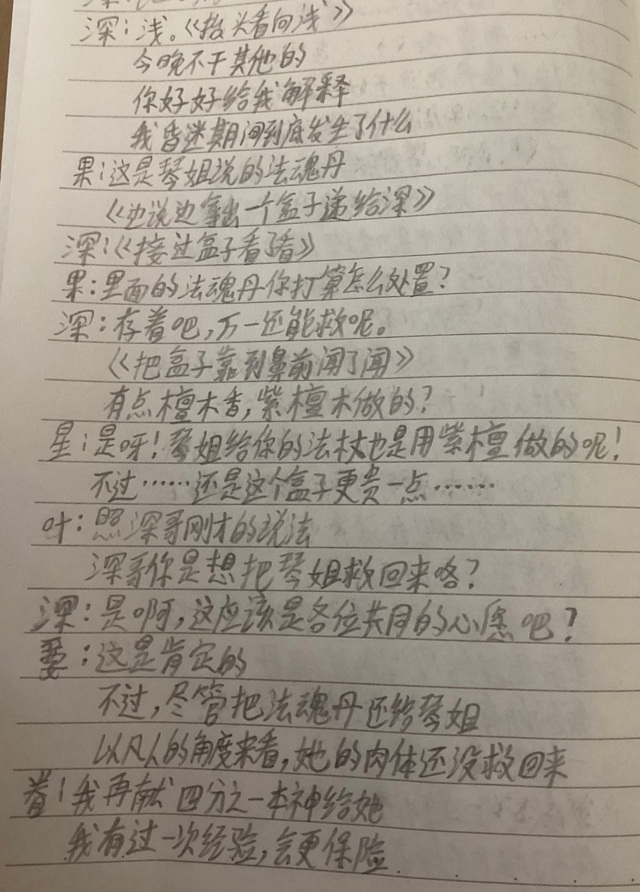 深:浅。《抬头看向浅》
今晚不干其他的
你好好给我解释
我昏迷期间到底发生了什么
果:这是琴姐说的法魂丹
《边说边拿出一个盒子递给深》
深:《接过盒子看了看》
果:里面的法魂丹你打算怎么处置?
深:存着吧,万一还能救呢。
《把盒子靠到鼻前闻了闻》
有点檀木香,紫檀木做的?
星:是呀!琴姐给你的法杖也是用紫檀做的呢!
不过……还是这个盒子更贵一点……
叶:照深哥刚才的说法
深哥你是想把琴姐救回来咯?
深:是啊,这应该是各位共同的心愿吧?
:这是肯定的
不过,尽管把法魂丹还给琴姐
以凡人的角度来看,她的肉体还没救回来
:我再献四分之一本神给她
我有过一次经验,会更保险.